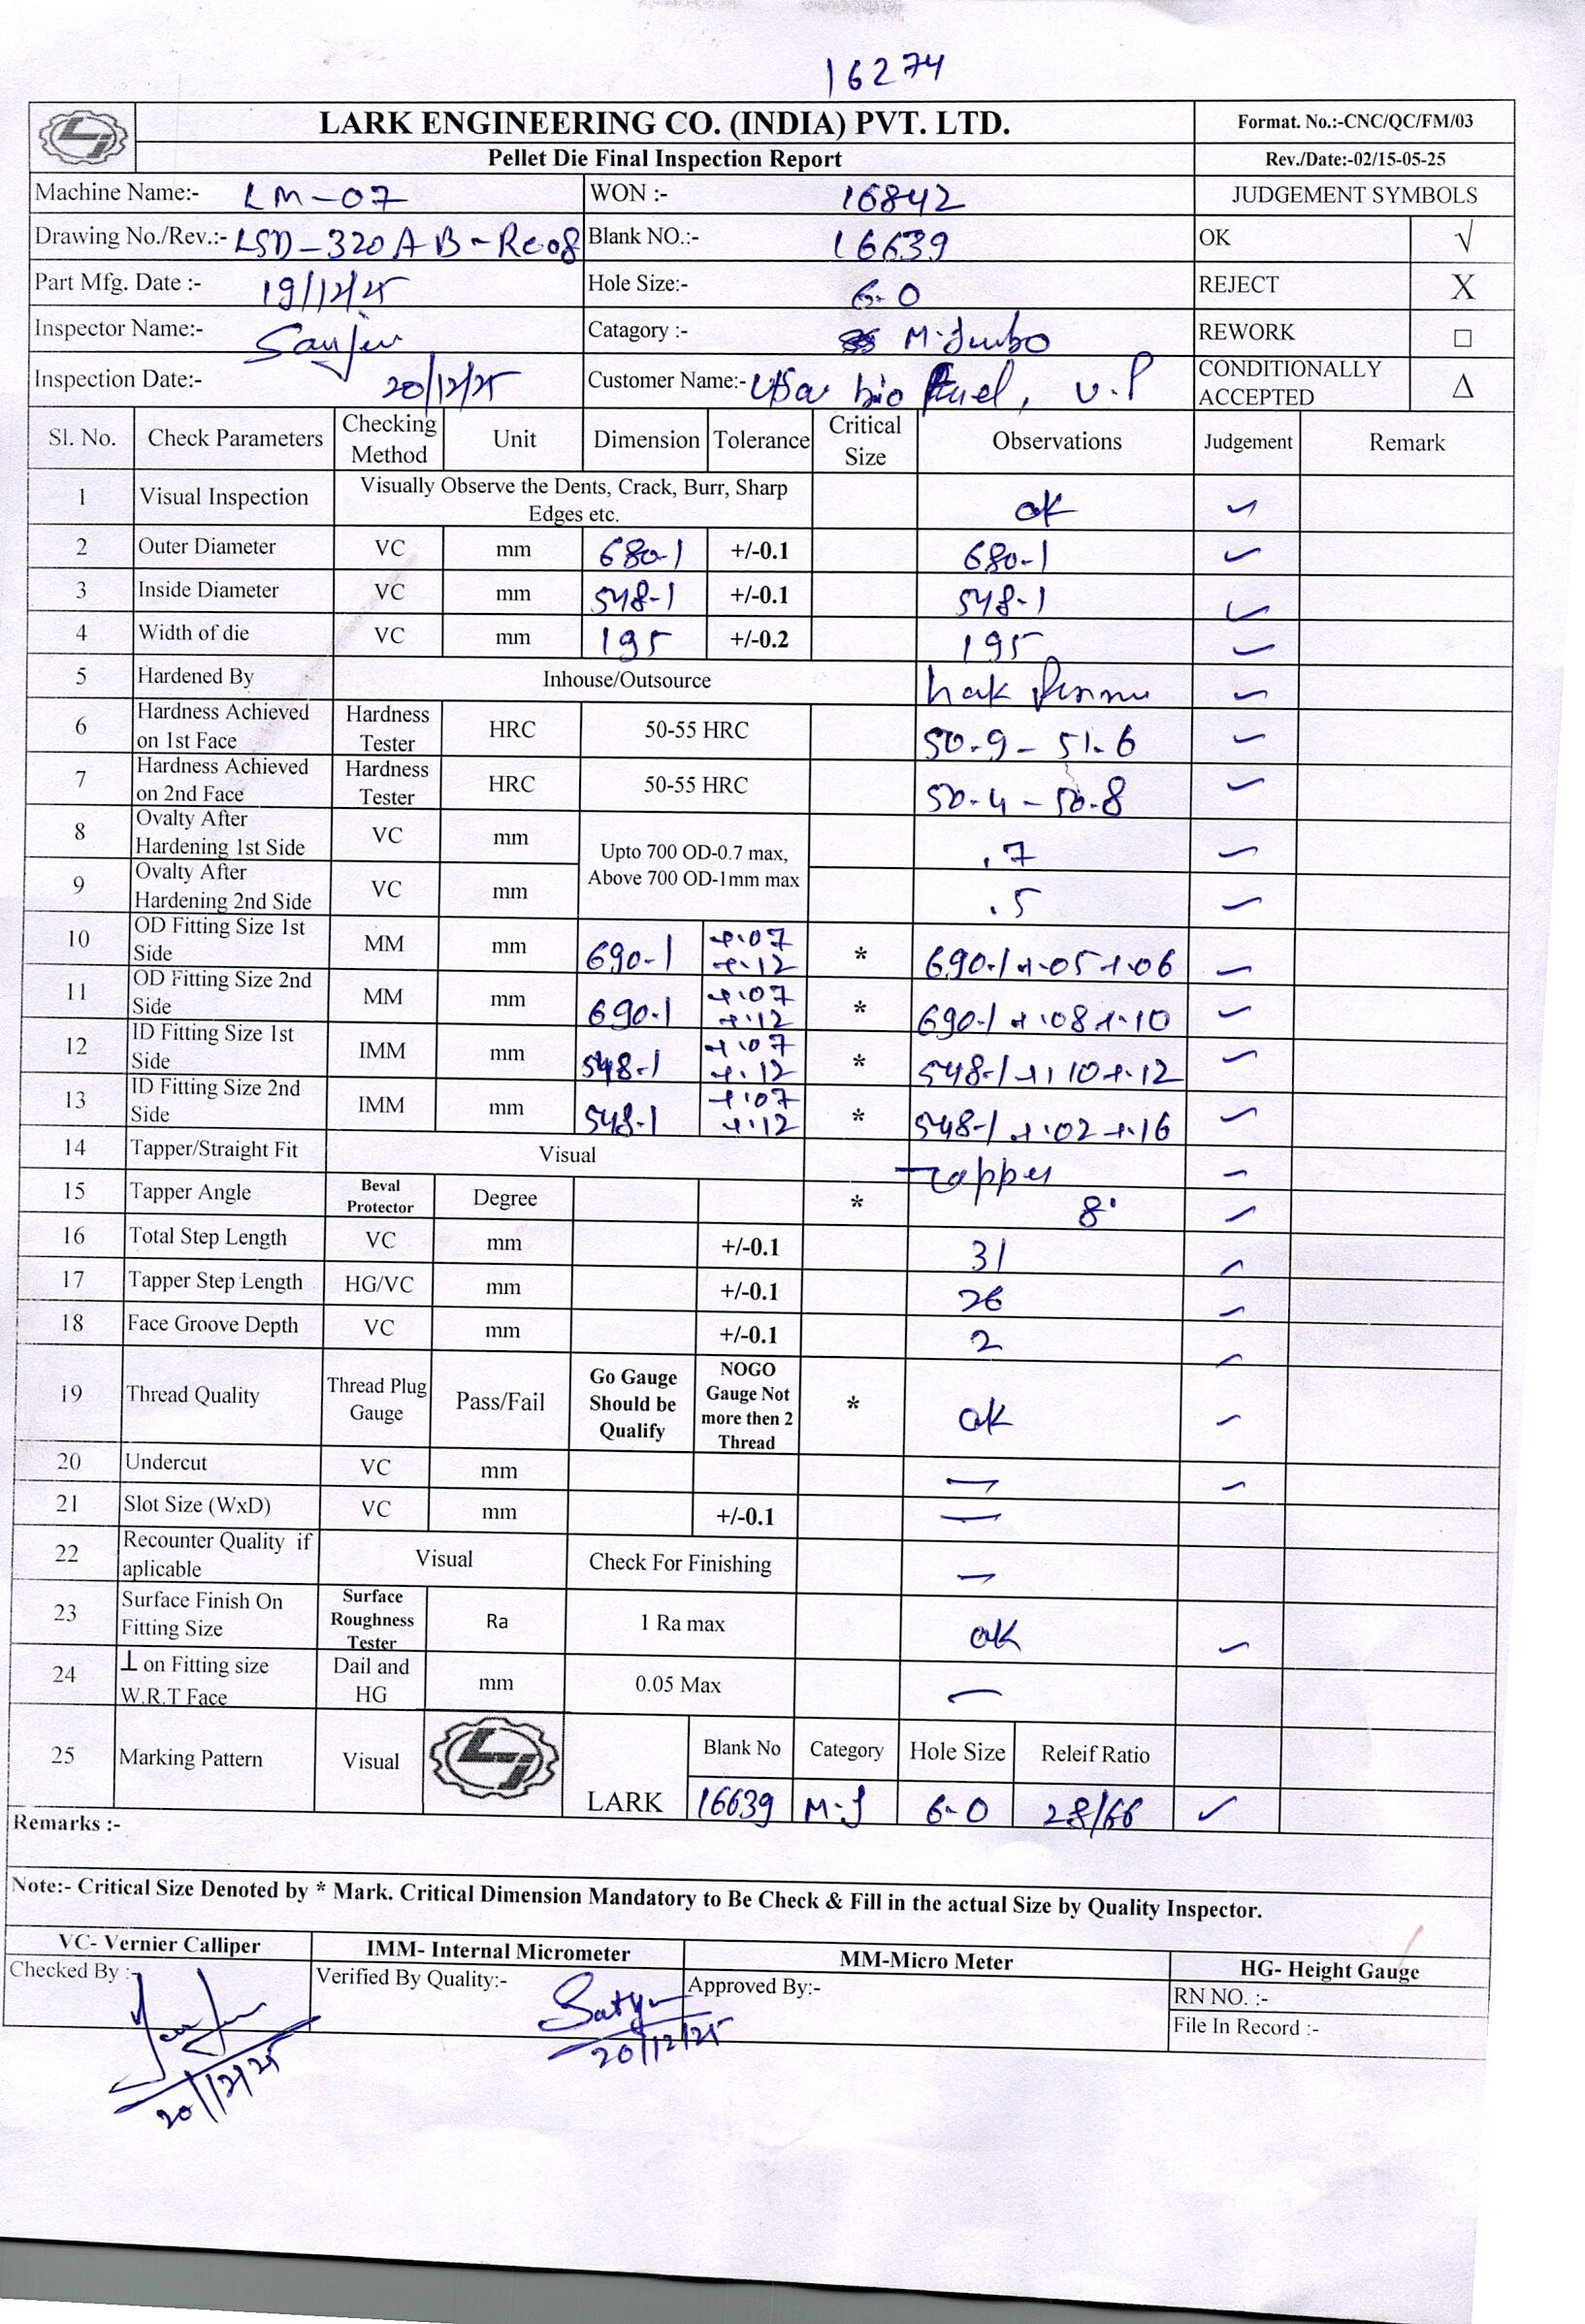 16274
LARK ENGINEERING CO. (INDIA) PVT. LTD. Format. No.:-CNC/QC/FM/03
Pellet Die Final Inspection Report Rev./Date:-02/15-05-25
Machine Name:- LM-07 WON :- 16842 JUDGEMENT SYMBOLS
Drawing No./Rev.:- LSD-320AB-Re08 Blank NO.:- 16639 OK √
Part Mfg. Date :- 19/12/25 Hole Size:- 6.0 REJECT X
Inspector Name:- Catagory :- M.Jumbo REWORK □
Inspection Date:- 20/12/25 Customer Name:- bio fuel, U.P CONDITIONALLY ACCEPTED Δ
Sl. No. Check Parameters Checking Method Unit Dimension Tolerance Critical Size Observations Judgement Remark
1 Visual Inspection Visually Observe the Dents, Crack, Burr, Sharp Edges etc. ok ✓
2 Outer Diameter VC mm 680.1 +/-0.1 680.1 ✓
3 Inside Diameter VC mm 548.1 +/-0.1 548.1 ✓
4 Width of die VC mm 195 +/-0.2 195 ✓
5 Hardened By Inhouse/Outsource ✓
6 Hardness Achieved on 1st Face Hardness Tester HRC 50-55 HRC 50.9 - 51.6 ✓
7 Hardness Achieved on 2nd Face Hardness Tester HRC 50-55 HRC 50.4 - 50.8 ✓
8 Ovalty After Hardening 1st Side VC mm Upto 700 OD-0.7 max, Above 700 OD-1mm max .7 ✓
9 Ovalty After Hardening 2nd Side VC mm .5 ✓
10 OD Fitting Size 1st Side MM mm 690.1 +.07 +.12 * 690.1 +.05 +.06 ✓
11 OD Fitting Size 2nd Side MM mm 690.1 +.07 +.12 * 690.1 +.08 +.10 ✓
12 ID Fitting Size 1st Side IMM mm 548.1 +.07 +.12 * 548.1 +.10 +.12 ✓
13 ID Fitting Size 2nd Side IMM mm 548.1 +.07 +.12 * 548.1 +.02 +.16 ✓
14 Tapper/Straight Fit Visual Tapper ✓
15 Tapper Angle Beval Protector Degree * 8° ✓
16 Total Step Length VC mm +/-0.1 31 ✓
17 Tapper Step Length HG/VC mm +/-0.1 26 ✓
18 Face Groove Depth VC mm +/-0.1 2 ✓
19 Thread Quality Thread Plug Gauge Pass/Fail Go Gauge Should be Qualify NOGO Gauge Not more then 2 Thread * ok ✓
20 Undercut VC mm — ✓
21 Slot Size (WxD) VC mm +/-0.1 —
22 Recounter Quality if aplicable Visual Check For Finishing —
23 Surface Finish On Fitting Size Surface Roughness Tester Ra 1 Ra max ok ✓
24 ⊥ on Fitting size W.R.T Face Dail and HG mm 0.05 Max —
25 Marking Pattern Visual LARK Blank No Category Hole Size Releif Ratio
16639 M-J 6.0 28/66 ✓
Remarks :-
Note:- Critical Size Denoted by * Mark. Critical Dimension Mandatory to Be Check & Fill in the actual Size by Quality Inspector.
VC- Vernier Calliper IMM- Internal Micrometer MM-Micro Meter HG- Height Gauge
Checked By :- Verified By Quality:- Approved By:- RN NO. :-
File In Record :-
20/12/25 20/12/25